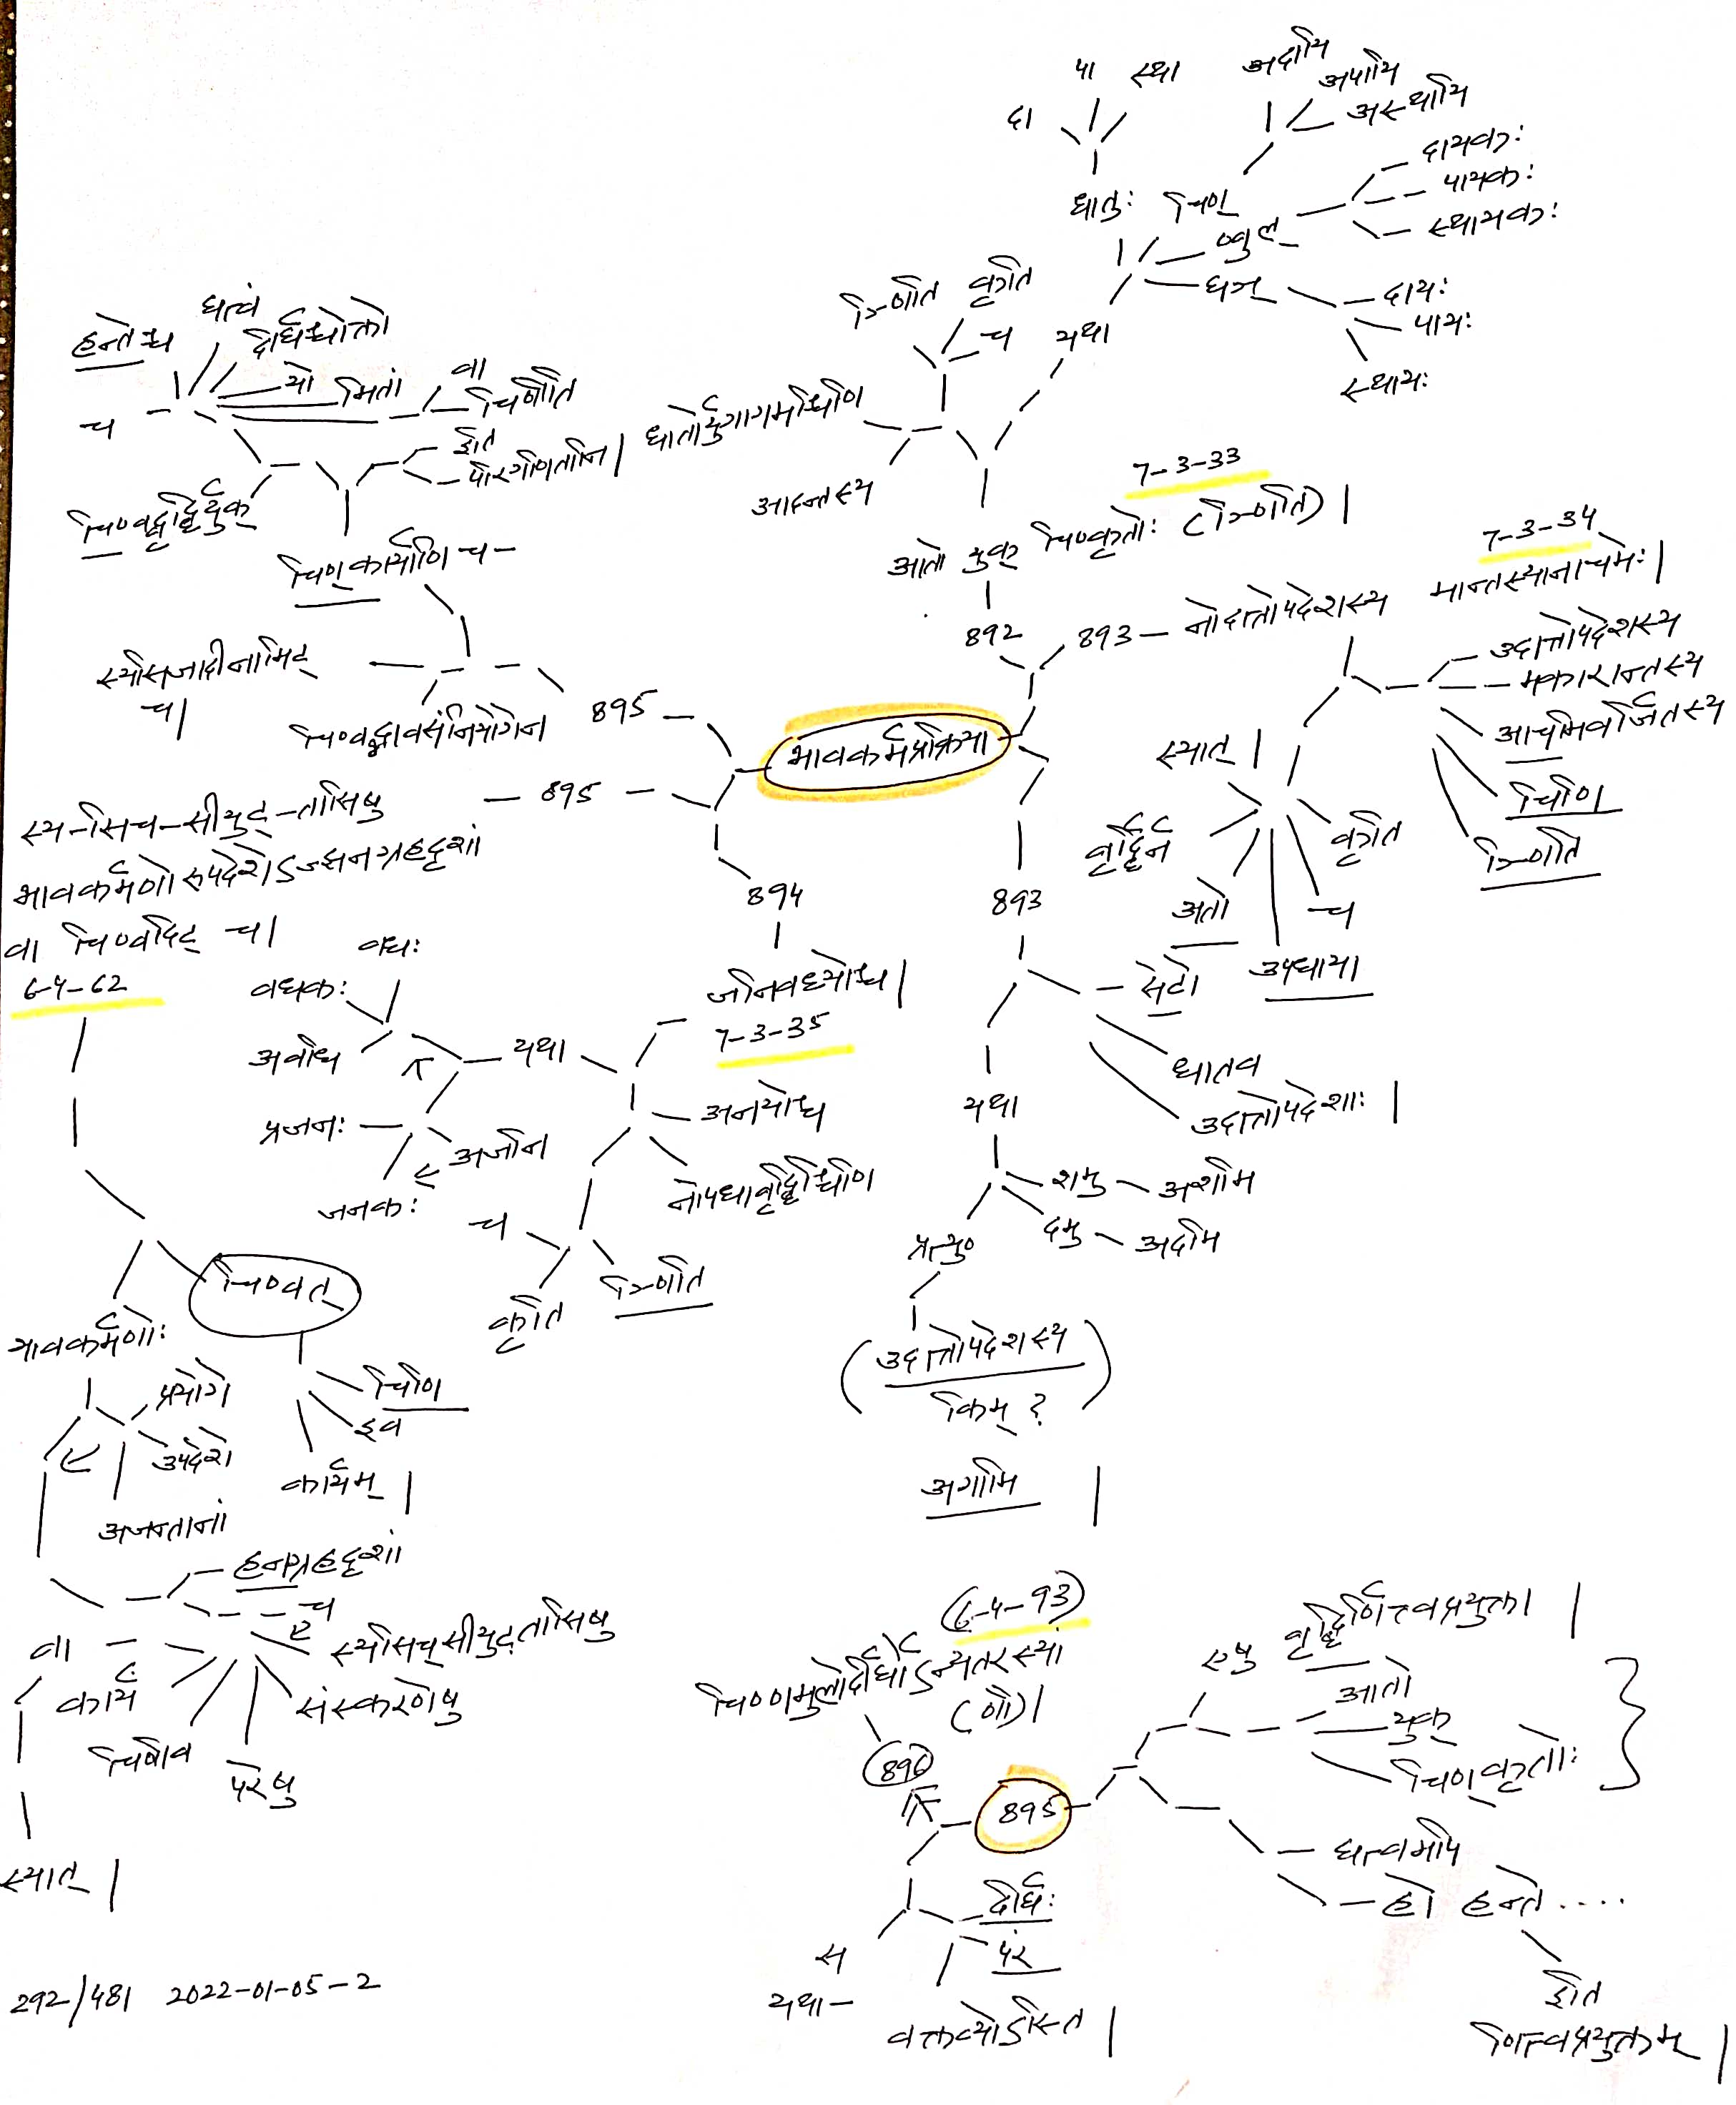 पा स्था
दा
धातुः
अदायि
अपायि
अस्थायि
चिण्
ण्वुल्
दायकः
पायकः
स्थायकः
घञ्
दायः
पायः
स्थायः
यथा
ञ्णिति कृति
च
धातोर्युगागमश्चिणि
आदन्तस्य
7-3-33
आतो युक् चिण्कृतोः (ञ्णिति) |
892
893 – नोदात्तोपदेशस्य मान्तस्यानाचमेः |
7-3-34
उदात्तोपदेशस्य
मकारान्तस्य
आचमिवर्जितस्य
चिणि
ञ्णिति
स्यात् |
वृद्धिर्न
अतो
उपधाया
च
कृति
हन्तेश्च
घत्वं
दीर्घश्चोक्तो
यो
मितां
वा
चिणीति
च
इति
परिगणितानि |
चिण्वद्वृद्धिर्युक्
चिण् कार्याणि च –
स्यसिजादीनामिट्
च |
चिण्वद्भावसंनियोगेन
895
भावकर्मप्रक्रिया
895
स्य – सिच – सीयुट् – तासिषु
भावकर्मणोरुपदेशेऽज्झनग्रहदृशां
वा चिण्वदिट् च |
6-4-62
894
जनिवध्योश्च |
7-3-35
अनयोश्च
नोपधावृद्धिश्चिणि
ञ्णिति
कृति
च
यथा
वधः
वधकः
अवधि
प्रजनः
अजनि
जनकः
893
सेटो
धातव
उदात्तोपदेशाः |
यथा
शमु – अशमि
दमु – अदमि
प्रत्यु०
(उदात्तोपदेशस्य
किम् ?)
अगामि |
चिण्वत्
चिणि
इव
कार्यम् |
भावकर्मणोः
प्रयोगे
उपदेशे
अजन्तानां
हनग्रहदृशां
च
स्यसिच् सीयुट् तासिषु
संस्करणेषु
परेषु
चिणीव
कार्यं
वा
स्यात् |
(6-4-93)
चिण्णमुलोर्दीर्घोऽन्यतरस्यां
(णौ) |
896
895
एषु
वृद्धिर्णित्त्वप्रयुक्ता |
आतो
युक्
चिण् कृतोः
घत्वमपि
हो हन्ते ....
इति
णित्त्वप्रयुक्तम् |
दीर्घः
पर
वक्तव्योऽस्ति |
स
यथा –
292/481 2022-01-05-2